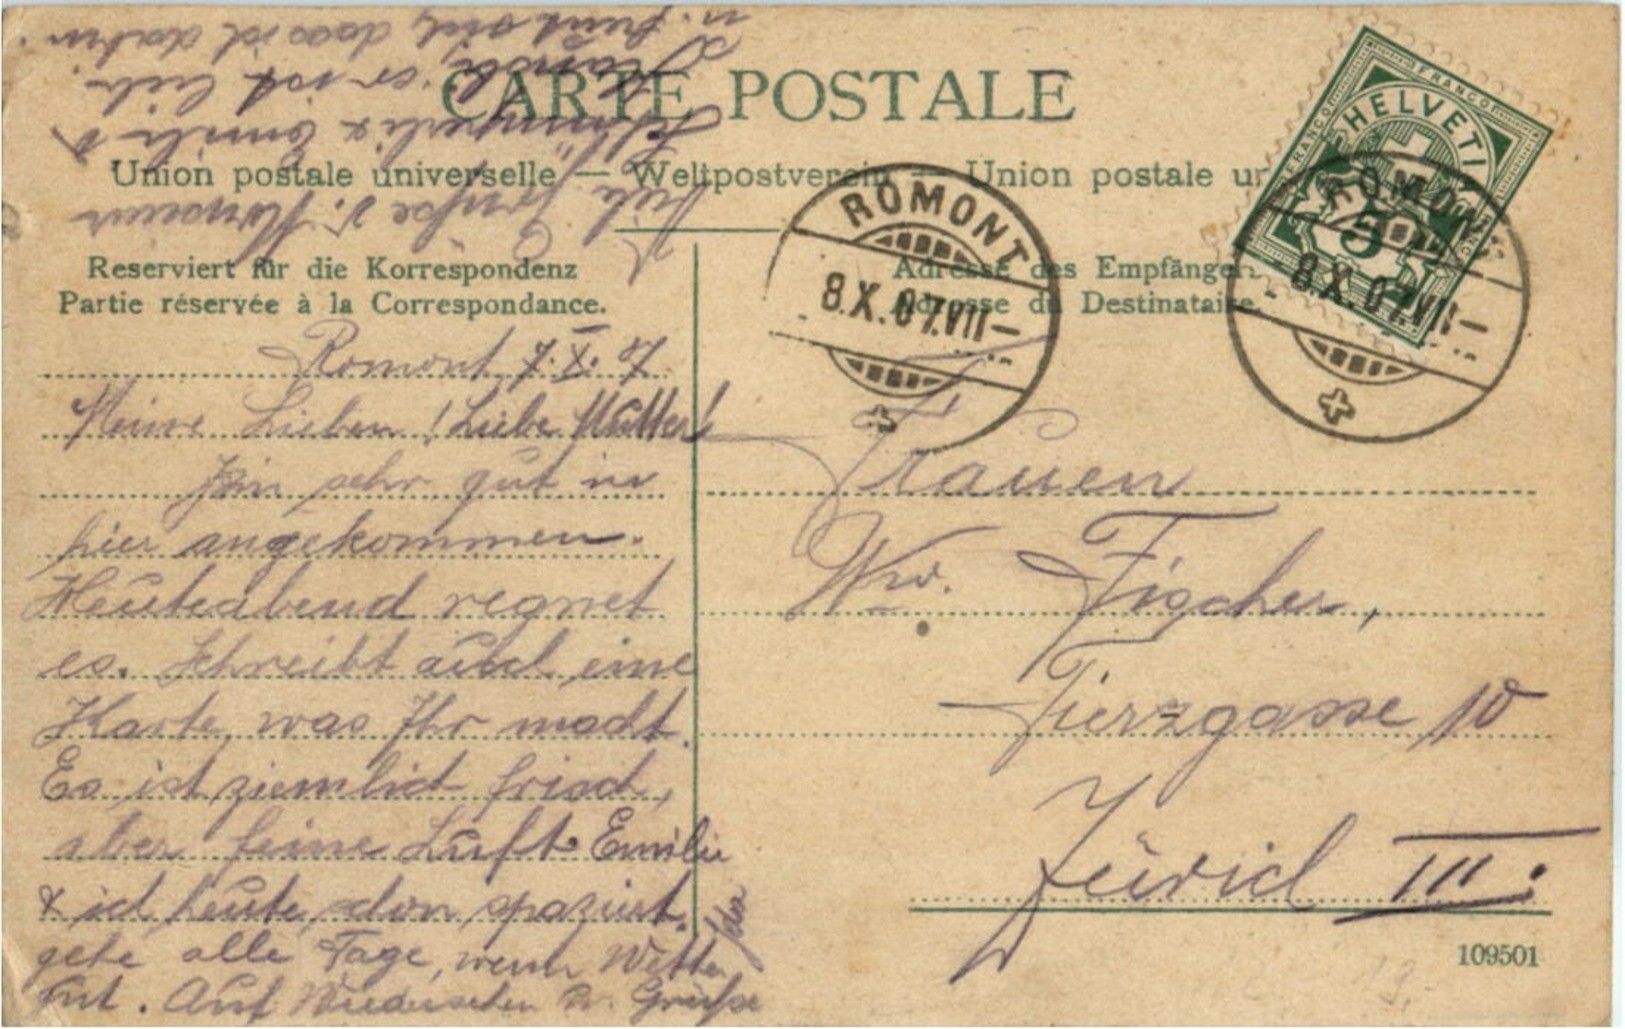 CARTE POSTALE
Union postale universelle — Weltpostverein — Union postale un
Reserviert für die Korrespondenz
Partie réservée à la Correspondance.
Adresse des Empfängers.
Adresse du Destinataire.
HELVETIA
FRANCO
FRANCO
5
ROMONT
8.X.07.VII—
ROMONT
8.X.07.VII—
Romont, 7. X. 07
Meine Lieben! Liebe Mutter!
Bin sehr gut in
hier angekommen.
Heuteabend regnet
es. Schreibt auch eine
Karte, was Ihr macht.
Es ist ziemlich frisch,
aber feine Luft. Emilie
& ich heute schon spaziert.
gehe alle Tage, wenn Wetter
gut. Auf Wiedersehen u. Grüsse
Viele Grüsse v.
& Emilie
er ist lieb
u. dass ich
Frauen
Ww. Fischer,
Zierzgasse 10
Zürich III.
109501